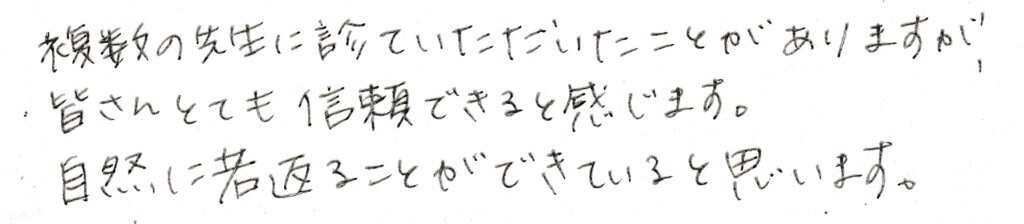 複数の先生に診ていただいたことがありますが、
皆さんとても信頼できると感じます。
自然に若返ることができていると思います。